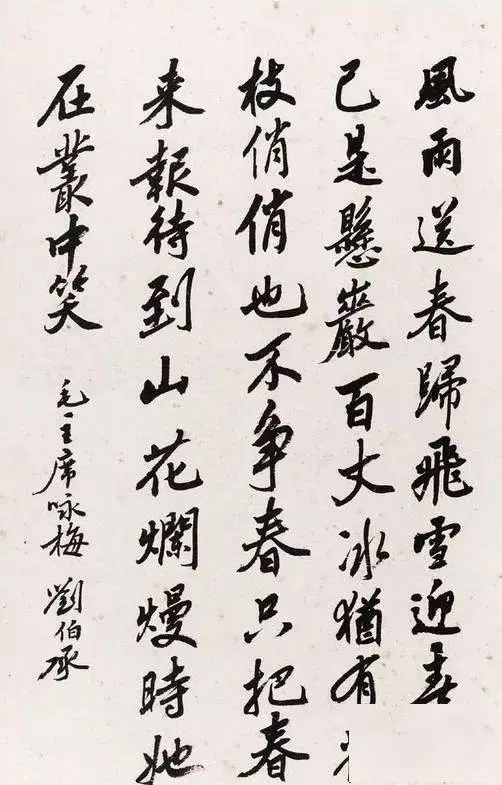 風雨送春歸飛雪迎春
已是懸巖百丈冰猶有
枝俏俏也不争春只把春
来報待到山花爛熳時她
在叢中笑
毛主席咏梅 劉伯承